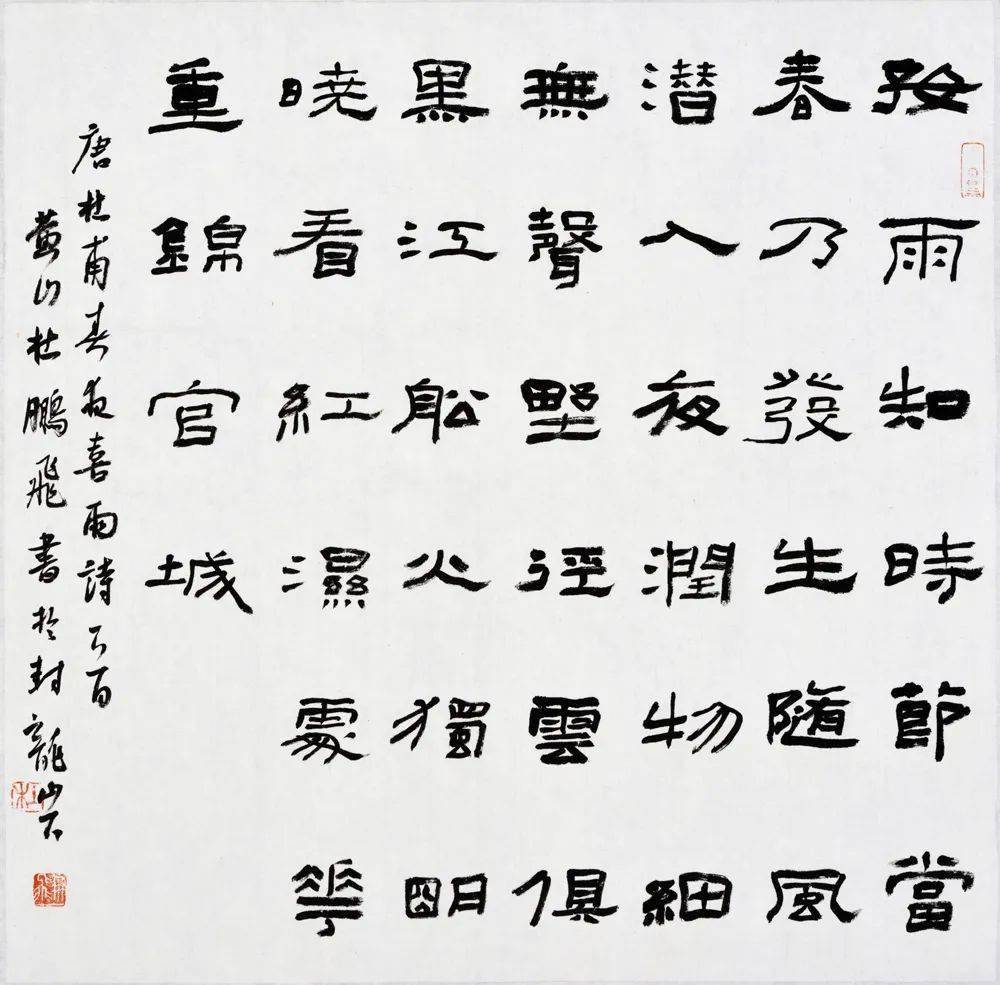 好雨知時節當
春乃發生隨風
潜入夜潤物細
無聲野徑雲俱
黑江舩火獨明
曉看紅濕處華
重錦官城
唐杜甫春夜喜雨詩一首
黃山杜鵬飛書於封龍山下
杜